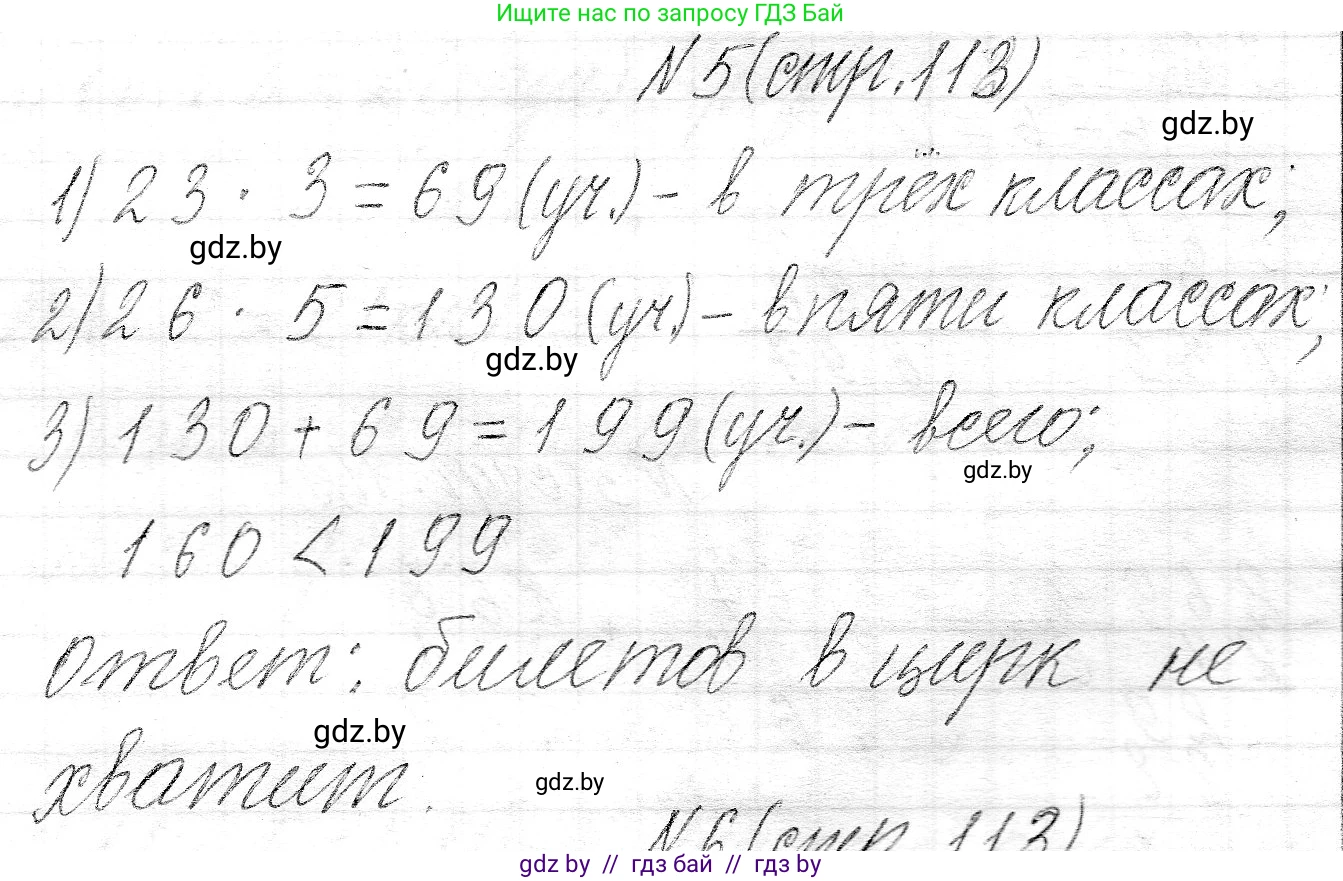 Ищите нас по запросу ГДЗ Бай
N 5 (стр. 113)
gdz.by
1) 23 · 3 = 69 (уч.) - в трёх классах;
gdz.by
2) 26 · 5 = 130 (уч.) - в пяти классах;
gdz.by
3) 130 + 69 = 199 (уч.) - всего;
gdz.by
160 < 199
Ответ: билетов в цирк не
gdz.by
хватит.
gdz.by
N 6 (стр. 113)
gdz by // гдз бай // гдз by